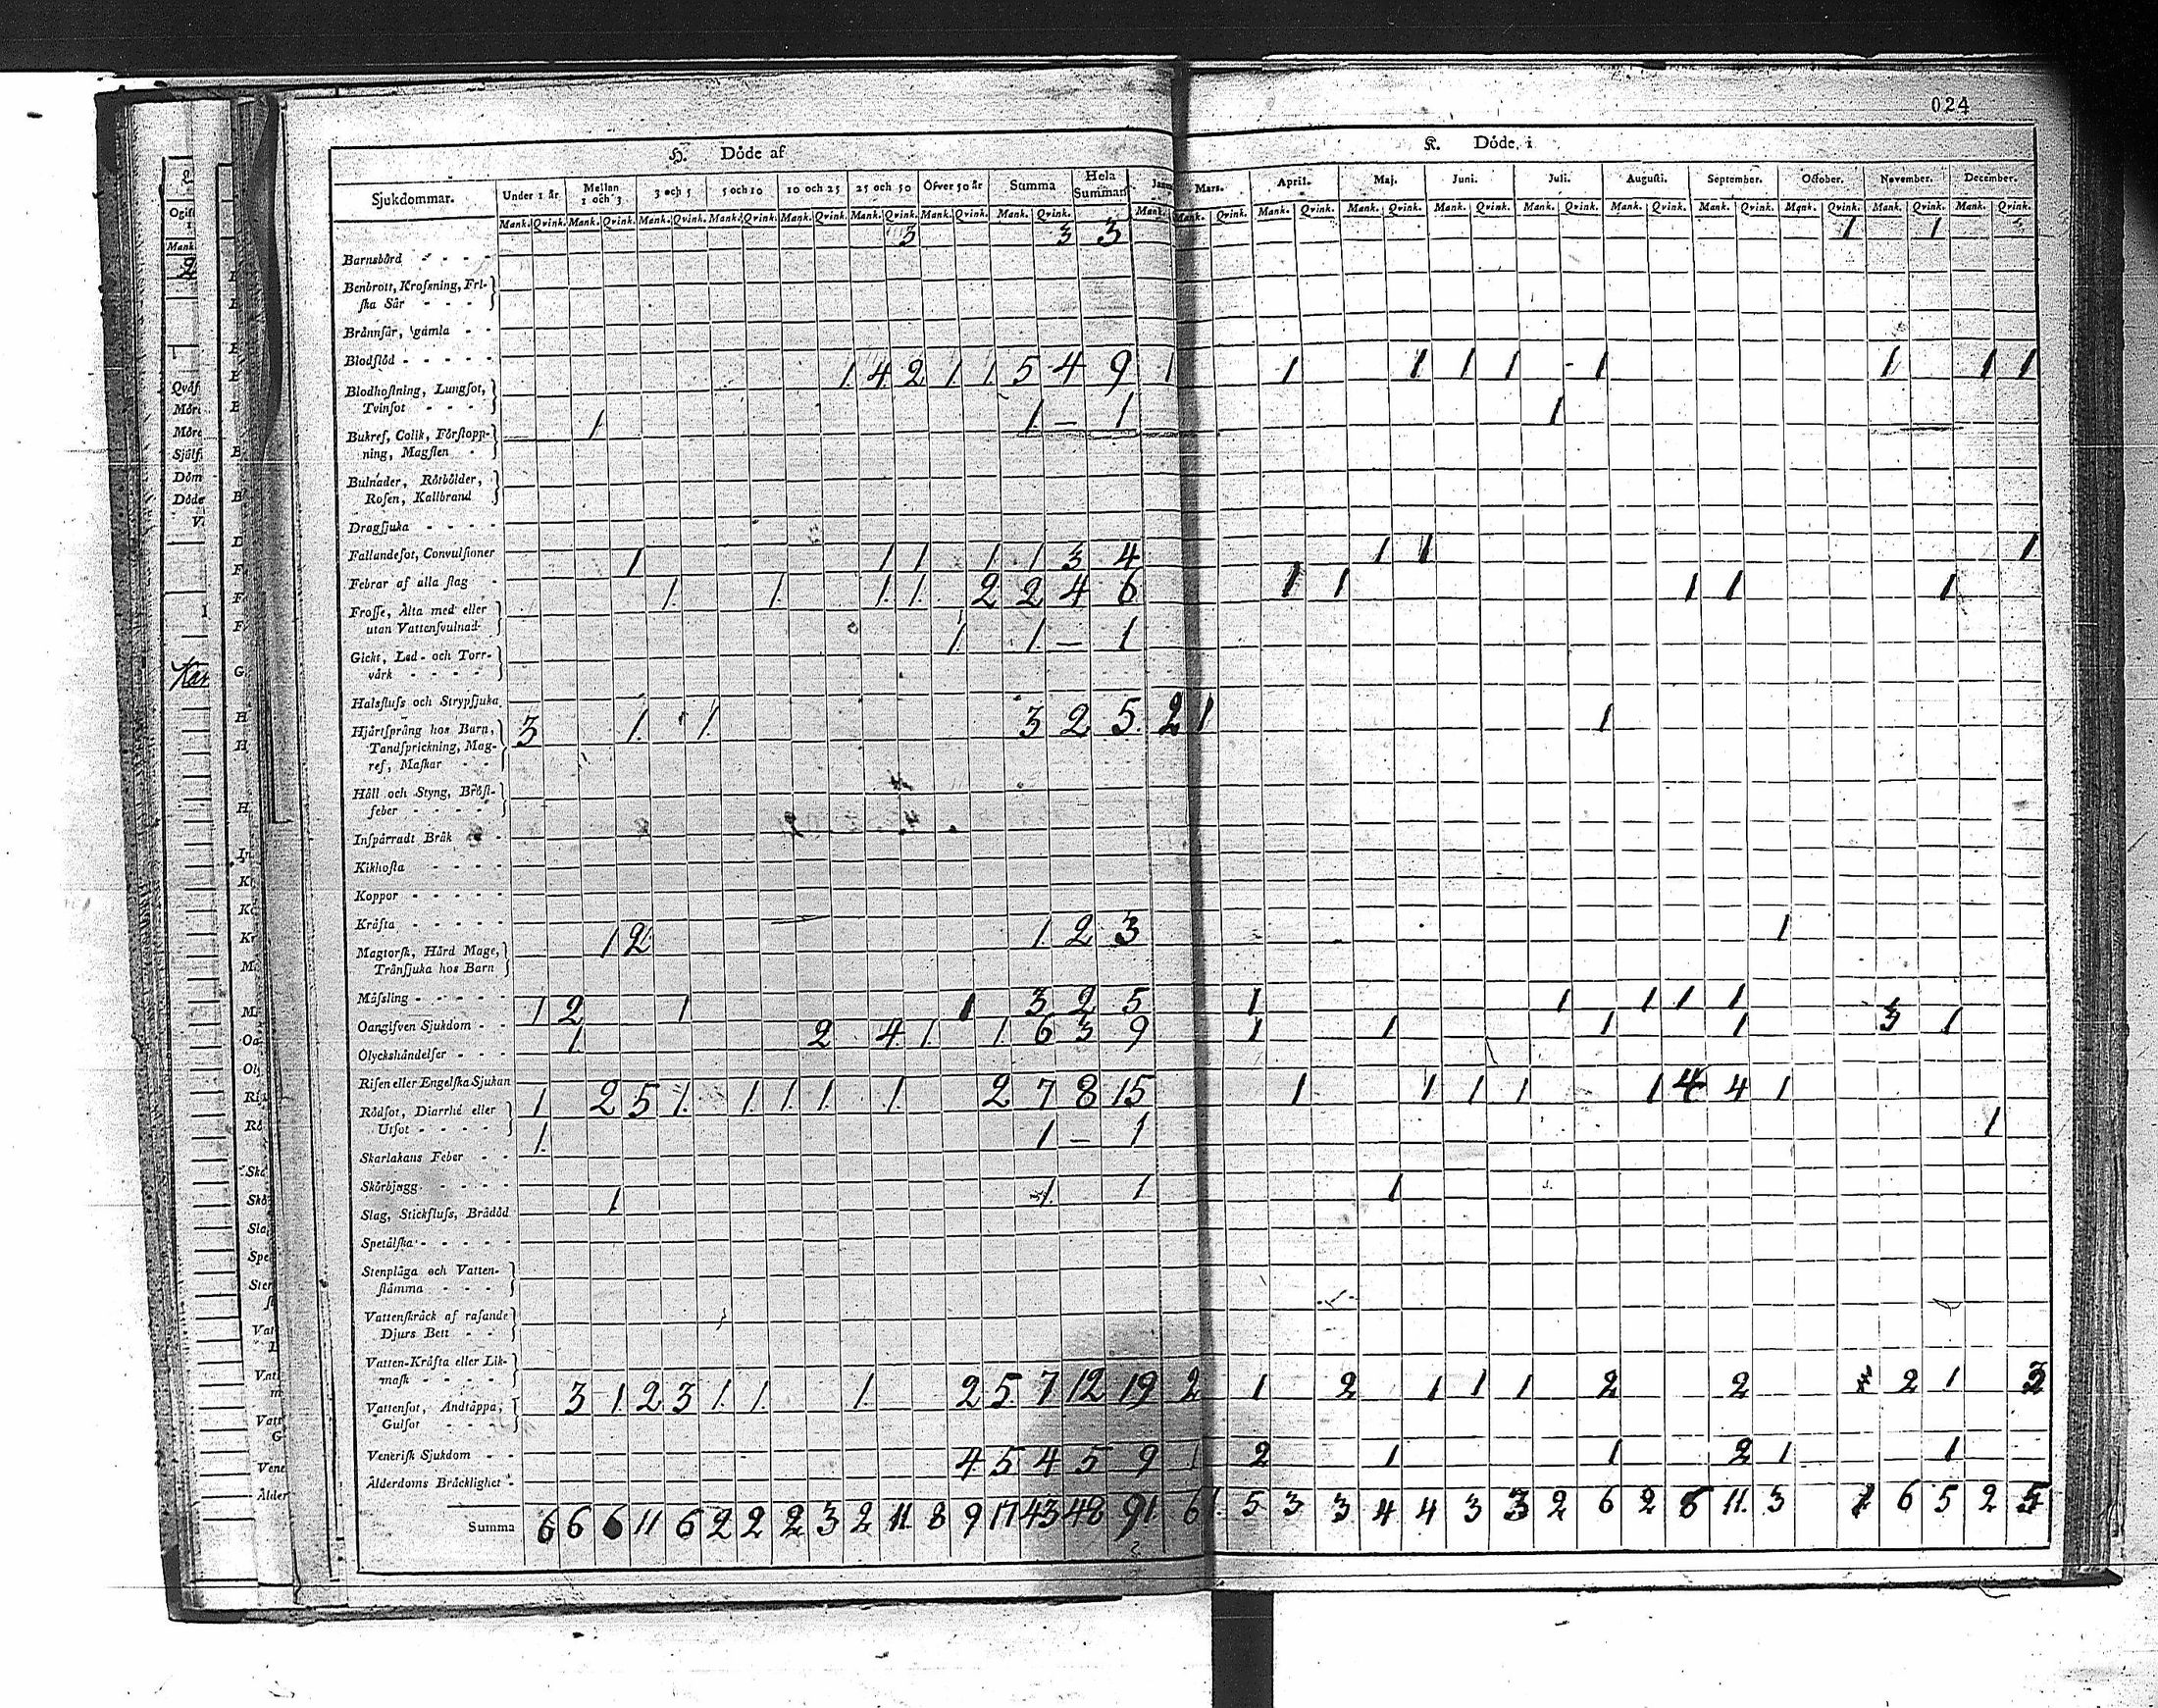 024
H. Döde af
K. Döde i
Sjukdommar. Under 1 år Mellan 1 och 3 3 och 5 5 och 10 10 och 25 25 och 50 Öfver 50 år Summa Hela Summan Janu Mars. April. Maj. Juni. Juli. Augusti. September. October. November. December.
Mank. Qvink. Mank. Qvink. Mank. Qvink. Mank. Qvink. Mank. Qvink. Mank. Qvink. Mank. Qvink. Mank. Qvink. Mank. Mank. Qvink. Mank. Qvink. Mank. Qvink. Mank. Qvink. Mank. Qvink. Mank. Qvink. Mank. Qvink. Mank. Qvink. Mank. Qvink. Mank. Qvink.
3 3 3 1 1
Barnsbörd
Benbrott, Krossning, Fri-
ska Sår
Brännsår, gamla
Blodstöd
1 4 2 1 1 5 4 9 1 1 1 1 1 1 1 1 1
Blodhostning, Lungsot,
Tvinsot
1 1 – 1 1
Bukref, Colik, Förstopp-
ning, Magsten
Bulnader, Rötbölder,
Rosen, Kallbrand
Dragsjuka
Fallandesot, Convulsioner
1 1 1 1 1 3 4 1 1 1
Febrar af alla slag
1 1 1 1 2 2 4 6 1 1 1 1 1
Frosse, Älta med eller
utan Vattensvulnad
1 1 – 1
Gickt, Led- och Torr-
värk
Halsfluss och Strypsjuka
3 1 1 3 2 5 2 1 1
Hjärtsprång hos Barn,
Tandsprickning, Mag-
ref, Maskar
Håll och Styng, Bröst-
feber
Inspärradt Bråk
Kikhosta
Koppor
Kräfta
1 2 1 2 3 1
Magtorsk, Hård Mage,
Trånsjuka hos Barn
Mässling
1 2 1 1 3 2 5 1 1 1 1 1
Oangifven Sjukdom
1 2 4 1 1 6 3 9 1 1 1 1 3 1
Olyckshändelser
Risen eller Engelska Sjukan
1 2 5 1 1 1 1 1 2 7 8 15 1 1 1 1 1 4 4 1
Rödsot, Diarrhé eller
Utsot
1 1 – 1 1
Skarlakans Feber
Skörbjugg
1 1 1 1
Slag, Stickfluss, Brådöd
Spetälska
Stenplåga och Vatten-
stämma
Vattenskräck af rasande
Djurs Bett
Vatten-Kräfta eller Lik-
mask
3 1 2 3 1 1 1 2 5 7 12 19 2 1 2 1 1 1 2 2 2 1 3
Vattensot, Andtäppa,
Gulsot
Venerisk Sjukdom
4 5 4 5 9 1 2 1 1 2 1 1
Ålderdoms Bräcklighet
Summa 6 6 6 11 6 2 2 2 3 2 11 8 9 17 43 48 91 6 1 5 3 3 4 4 3 3 2 6 2 11 3 6 5 2 5